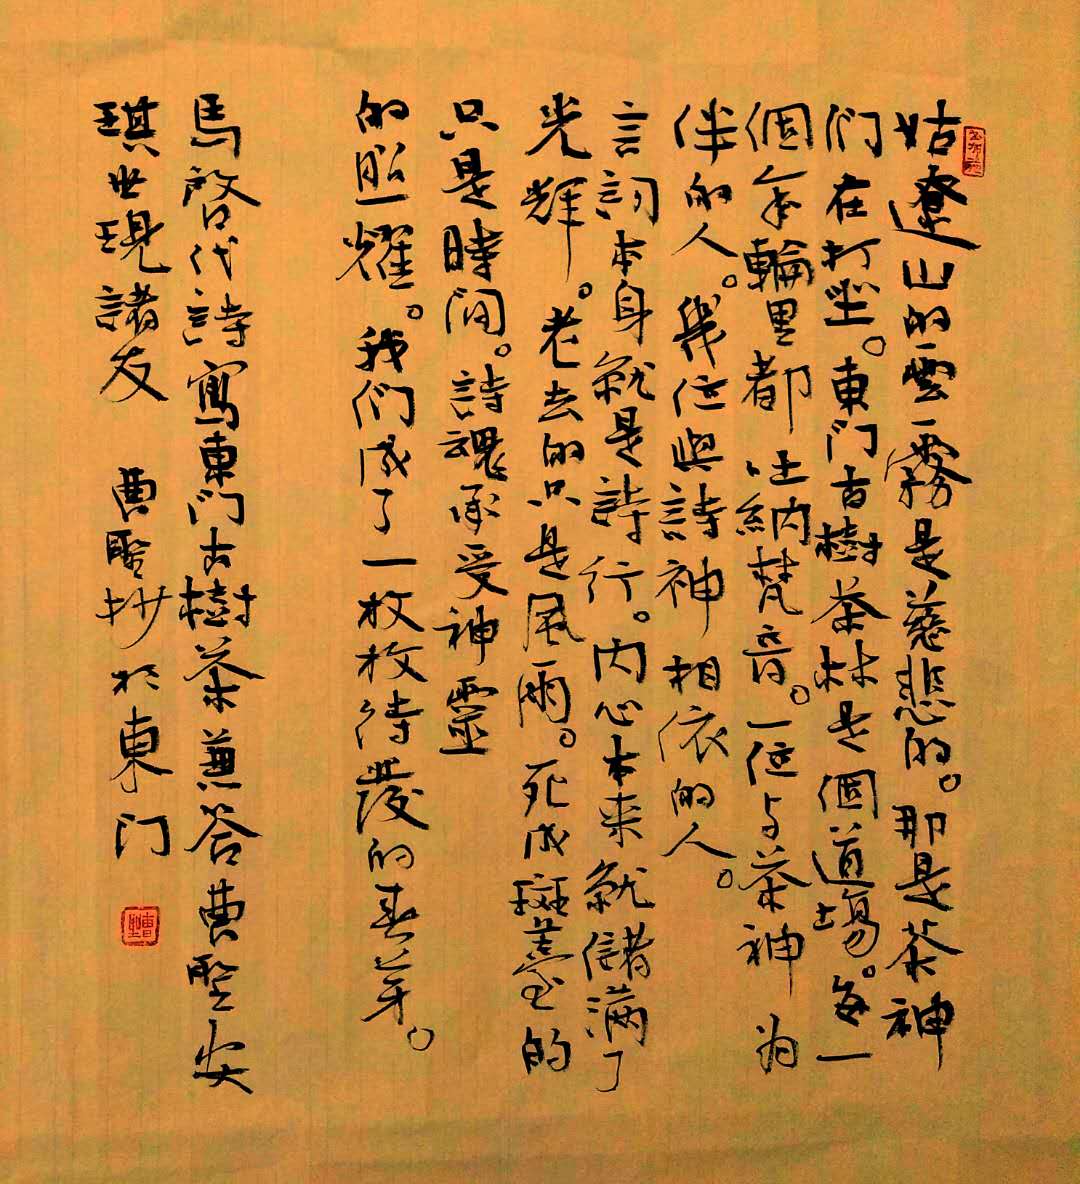 姑遼山的雲霧是慈悲的。那是茶神
们在打坐。東门古樹茶林是個道場。每一
個年輪里都吐納梵音。一位与茶神为
伴的人。幾位與詩神相依的人。
言詞本身就是詩行。内心本来就儲满了
光輝。老去的只是風雨。死成斑薹的
只是時间。詩魂承受神靈
的照耀。我们成了一枚枚待發的春芽。
馬啓代詩寫東门古樹茶兼答曹聖安
琪世現諸友 曹聖抄於東门